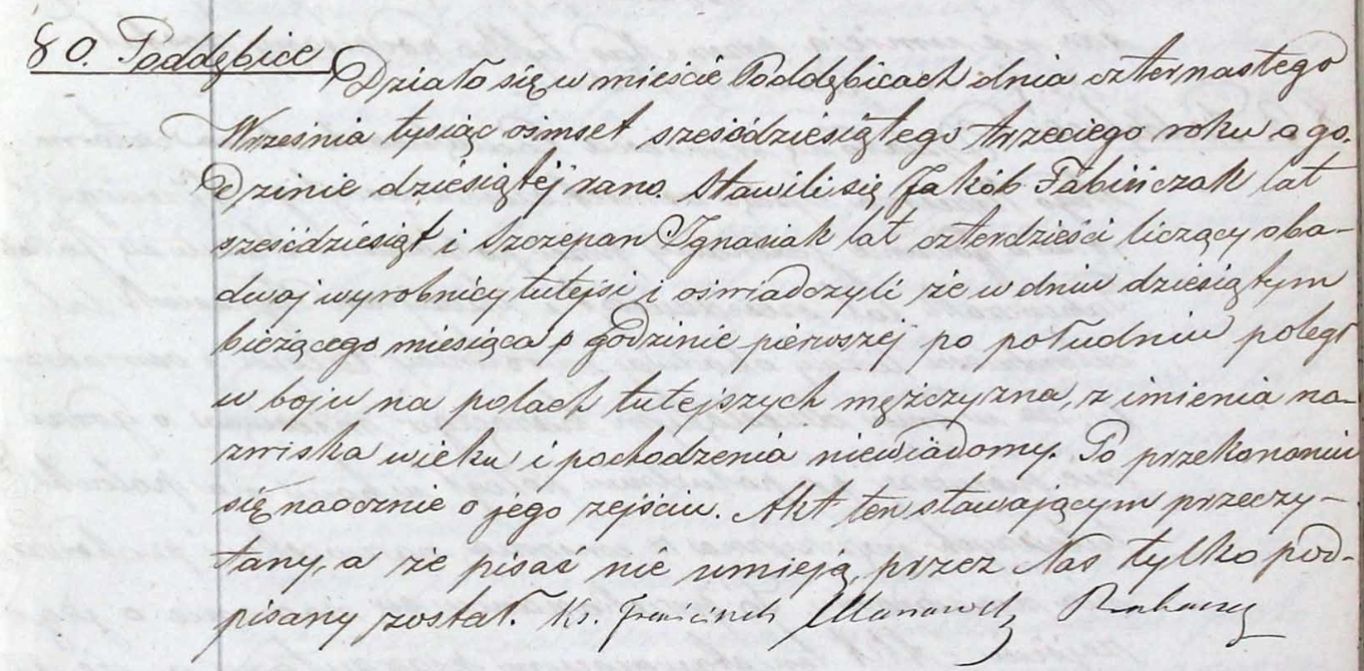 80. Poddębice
Działo się w mieście Poddębicach dnia czternastego
Września tysiąc ośmset sześćdziesiątego trzeciego roku o go-
dzinie dziesiątej rano. Stawili się Jakób Fabińczak lat
sześćdziesiąt i Szczepan Ignasiak lat czterdzieści liczący oba-
dwaj wyrobnicy tutejsi i oświadczyli że w dniu dziesiątym
bieżącego miesiąca o godzinie pierwszej po południu poległ
w boju na polach tutejszych mężczyzna, z imienia na-
zwiska wieku i pochodzenia niewiadomy. Po przekonaniu
się naocznie o jego zejściu. Akt ten stawającym przeczy-
tany, a że pisać nie umieją, przez Nas tylko pod-
pisany został. Ks.